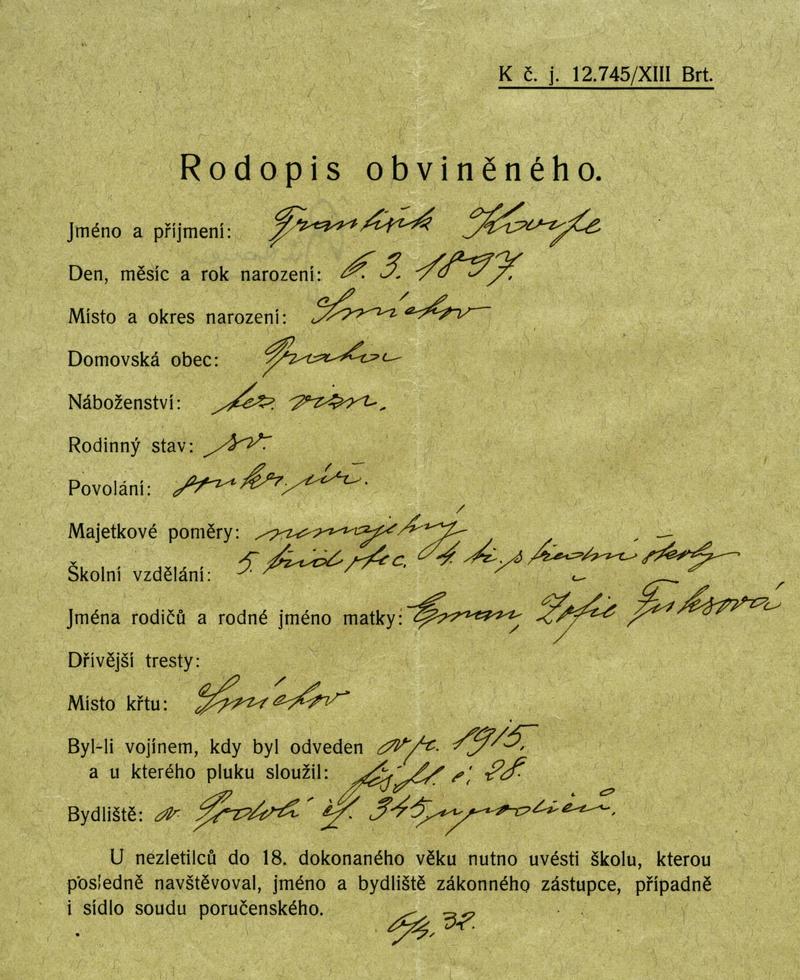 K č. j. 12.745/XIII Brt.
Rodopis obviněného.
Jméno a příjmení: František
Den, měsíc a rok narození: 6. 3. 1897.
Místo a okres narození: Smíchov
Domovská obec: Praha
Náboženství: bez vyzn.
Rodinný stav: sv.
Povolání: úř.
Majetkové poměry: nemajetný
Školní vzdělání: 5 tříd obec. 4 tř. střední školy
Jména rodičů a rodné jméno matky: Žofie Fuksová
Dřívější tresty:
Místo křtu: Smíchov
Byl-li vojínem, kdy byl odveden v r. 1915,
a u kterého pluku sloužil: č. 28.
Bydliště: v čp. 345, u rodičů.
U nezletilců do 18. dokonaného věku nutno uvésti školu, kterou
posledně navštěvoval, jméno a bydliště zákonného zástupce, případně
i sídlo soudu poručenského.